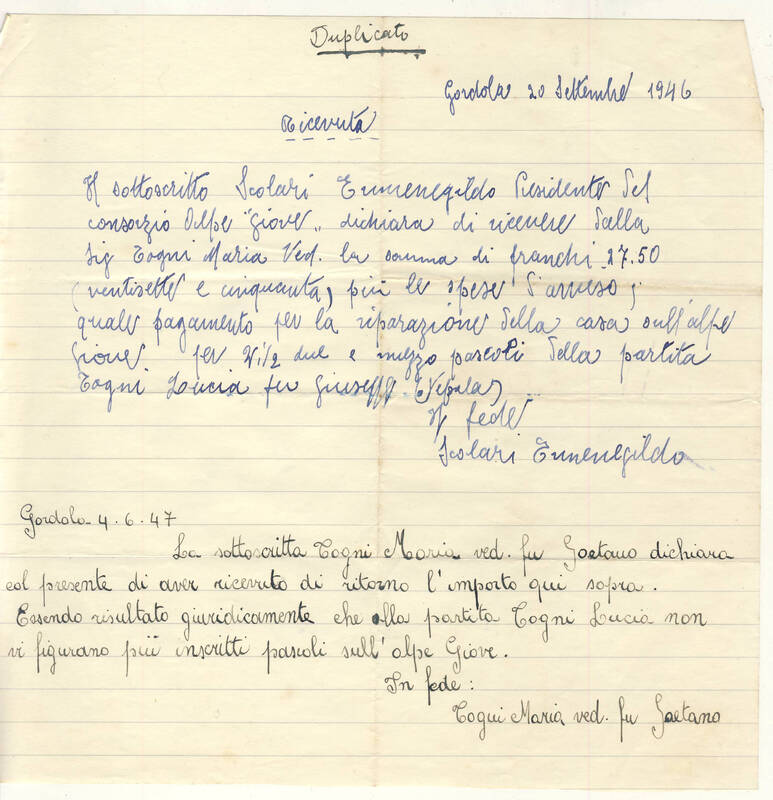 Duplicato
Gordola 20 Settembre 1946
Ricevuta
Il sottoscritto Scolari Ermenegildo Presidente del
consorzio Alpe "Giove" dichiara di ricevere dalla
Sig Togni Maria Ved. la somma di franchi 27.50
(ventisette e cinquanta) più le spese d'avviso;
quale pagamento per la riparazione della casa sull'alpe
Giove per 2 1/2 due e mezzo pascoli della partita
Togni Lucia fu Giuseppe
In fede
Scolari Ermenegildo
Gordola 4.6.47
La sottoscritta Togni Maria ved. fu Gaetano dichiara
col presente di aver ricevuto di ritorno l'importo qui sopra.
Essendo risultato giuridicamente che alla partita Togni Lucia non
vi figurano più inscritti pascoli sull'alpe Giove.
In fede:
Togni Maria ved. fu Gaetano